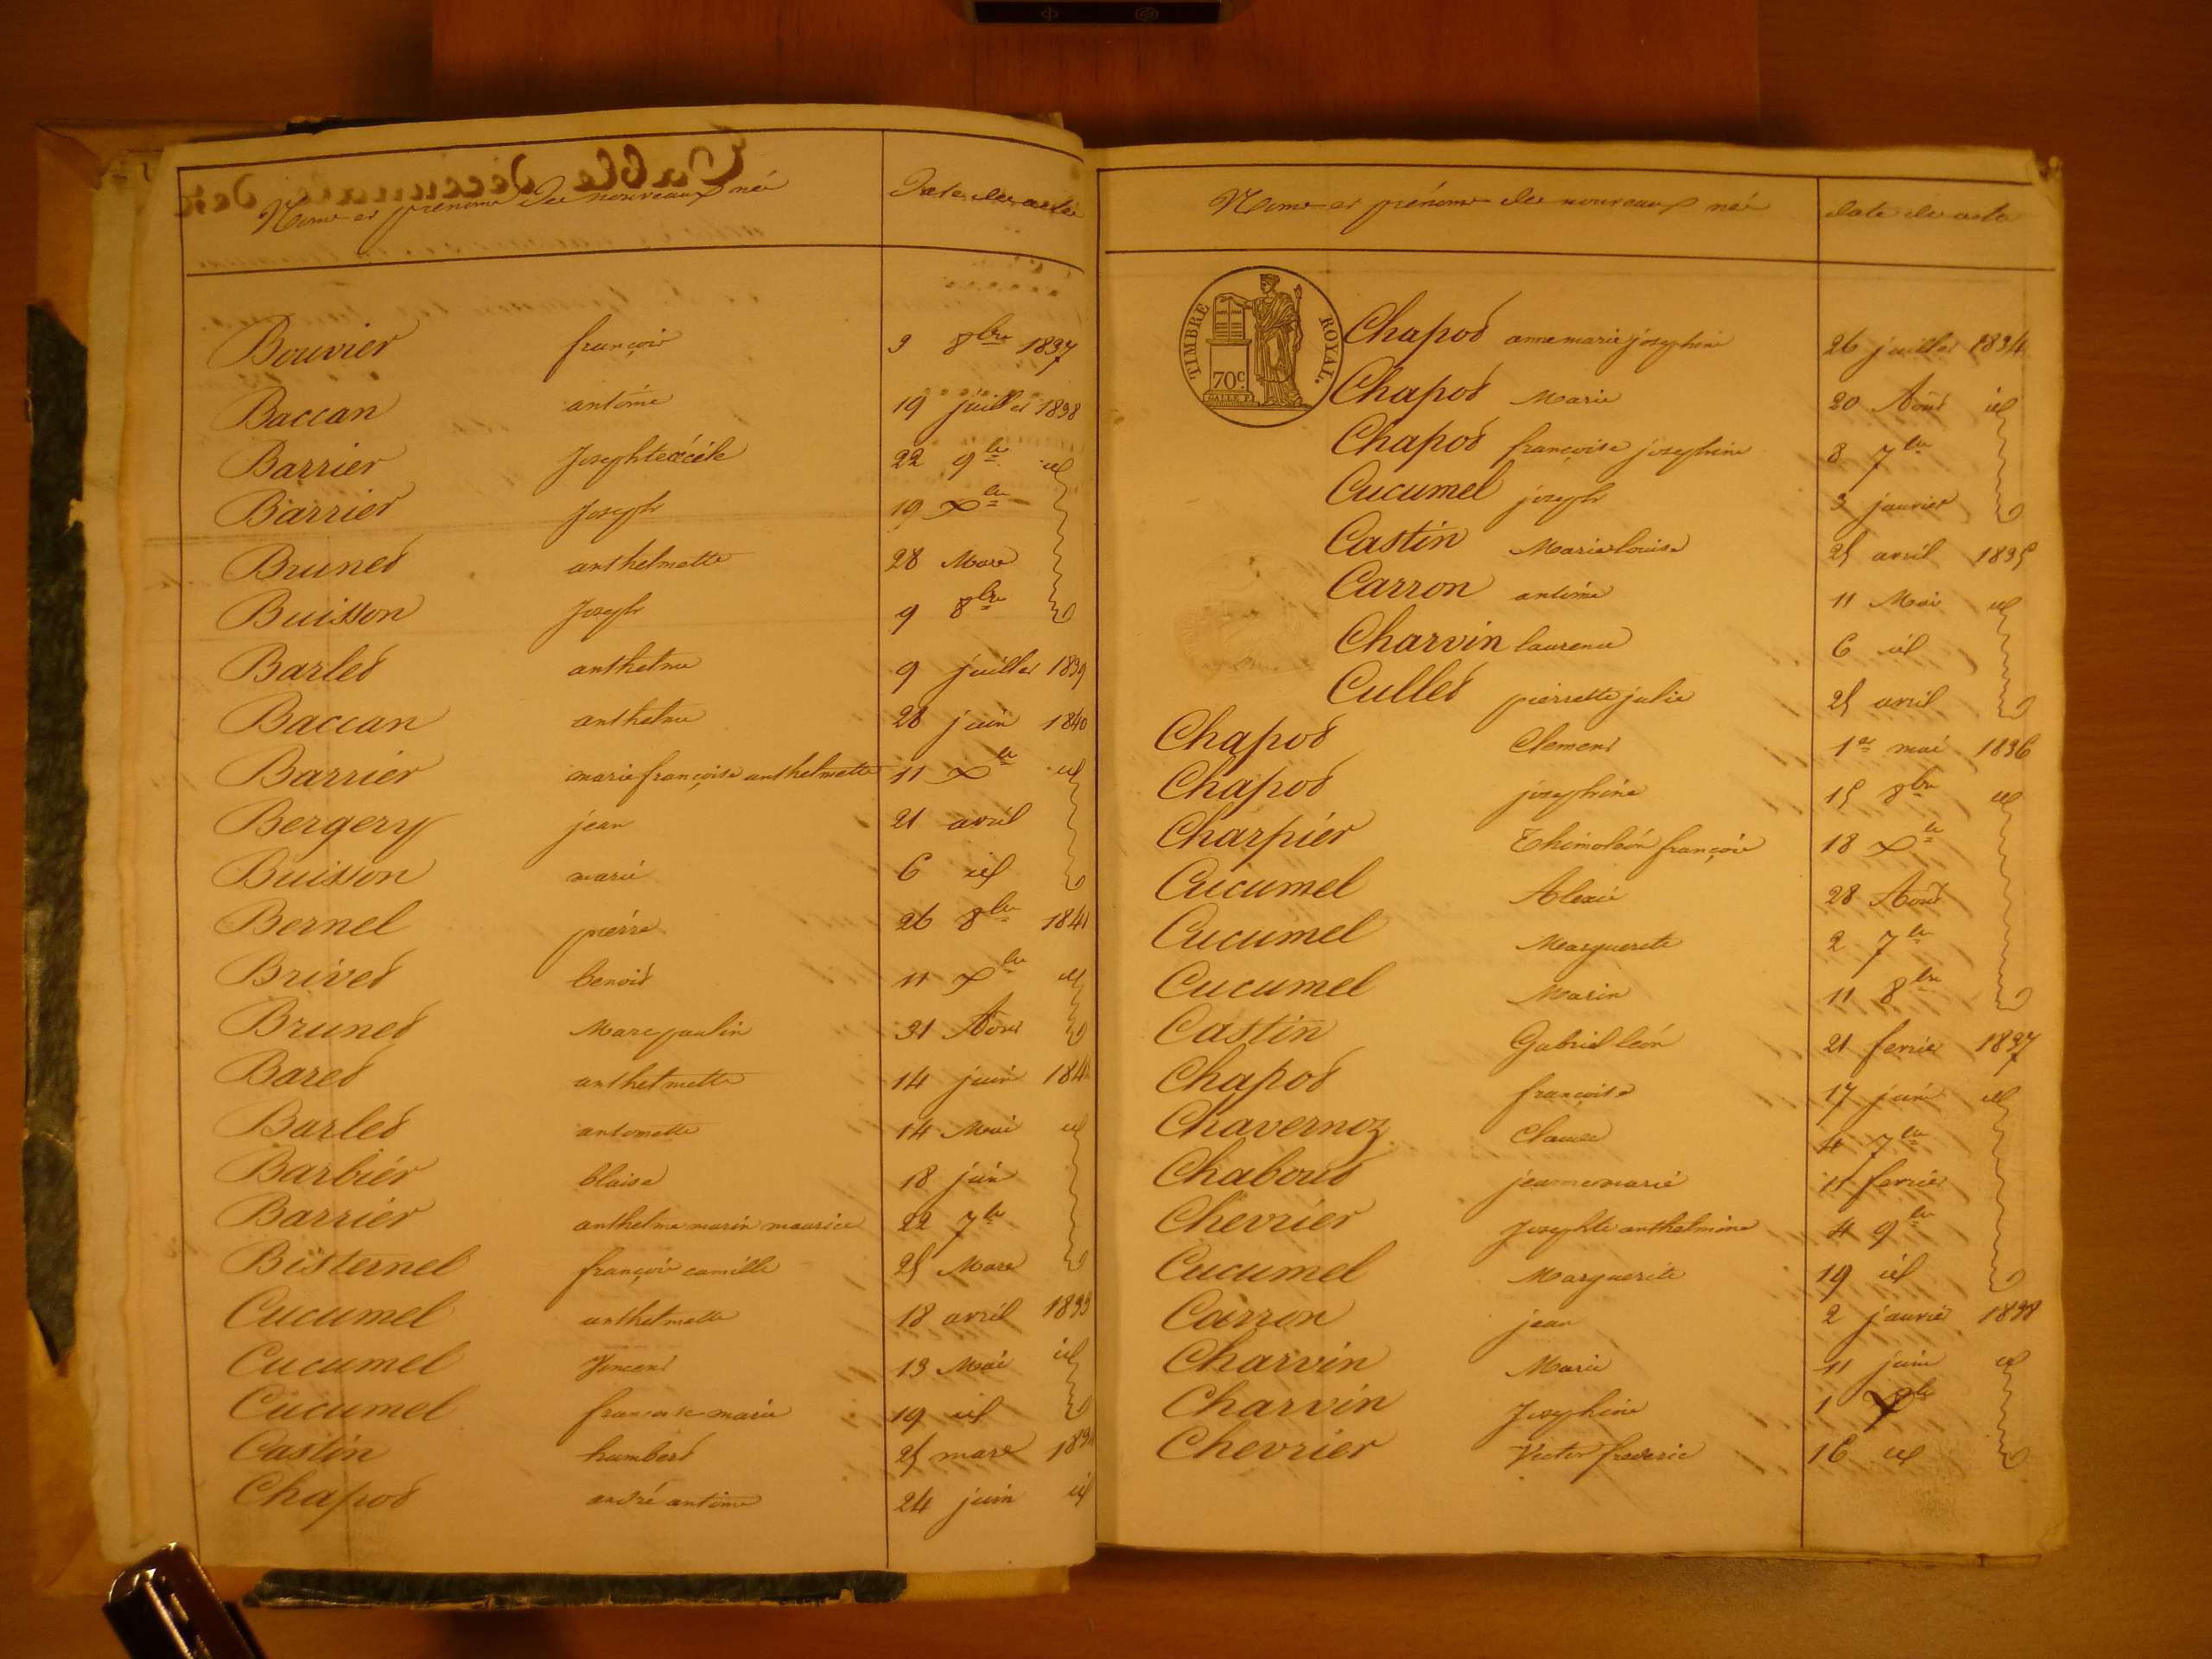 Table décennale des
Noms et prénoms des nouveaux nés
Date des actes
Bouvier françois 3 8bre 1837
Baccan antoine 19 juillet 1838
Barrier Josephte cécile 22 9bre id
Barrier Joseph 19 Xbre
Brunet anthelmette 28 Mars
Buisson Joseph 9 8bre
Barlet anthelme 9 juillet 1839
Baccan anthelme 28 juin 1840
Barrier marie françoise anthelmette 11 Xbre id
Bergery jean 21 avril
Buisson marie 6 id
Bernel pierre 26 8bre 1841
Brivet benoit 11 Xbre id
Brunet Marc paulin 31 Aout
Baret anthelmette 14 juin 184
Barlet antoinette 14 Mai id
Barbier blaise 18 juin
Barrier anthelme marin maurice 22 7bre
Bisternel françois camille 25 Mars
Cucumel anthelmette 18 avril 1833
Cucumel Vincent 13 Mai id
Cucumel francoise marie 19 id
Castin humbert 25 mars 183
Chapot andré antoine 24 juin id
Noms et prénoms des nouveaux nés
date des actes
TIMBRE ROYAL.
70c.
Chapot anne marie josephine 26 juillet 1834
Chapot Marie 20 Aout id
Chapot françoise josephine 8 7bre
Cucumel joseph 3 janvier
Castin Marie louise 25 avril 1835
Carron antoine 11 Mai id
Charvin laurence 6 id
Cullet pierrette julie 25 avril
Chapot Clement 1er mai 1836
Chapot josephine 15 8bre id
Charpier Thimoléon françois 18 Xbre
Cucumel Alexis 28 Aout
Cucumel Marguerite 2 7bre
Cucumel Marin 11 8bre
Castin Gabriel léon 21 fevrier 1837
Chapot francoise 17 juin id
Chavernoz Claude 4 7bre
Chaboud jeanne marie 11 fevrier
Chevrier Josephte anthelmine 4 9bre
Cucumel Marguerite 19 id
Carron jean 2 janvier 1838
Charvin Marie 11 juin id
Charvin Josephine 1 Xbre
Chevrier Victor frederic 16 id